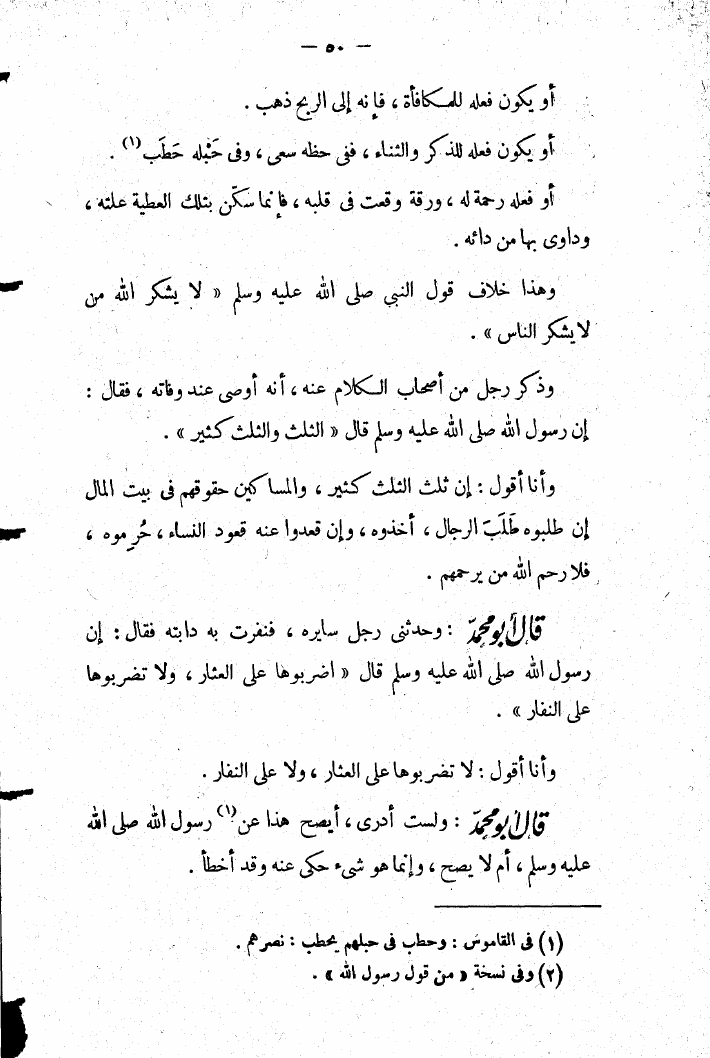 — ٥٠ —
أو يكون فعله للمكافأة ، فإنه إلى الربح ذهب .
أو يكون فعله للذكر والثناء ، ففى حظه سعى ، وفى حَبْله حَطَب (١) .
أو فعله رحمة له ، ورقة وقعت فى قلبه ، فإنما سكّن بتلك العطية علته ،
وداوى بها من دائه .
وهذا خلاف قول النبي صلى الله عليه وسلم « لا يشكر الله من
لا يشكر الناس » .
وذكر رجل من أصحاب الكلام عنه ، أنه أوصى عند وفاته ، فقال :
إن رسول الله صلى الله عليه وسلم قال « الثلث والثلث كثير » .
وأنا أقول : إن ثلث الثلث كثير ، والمساكين حقوقهم فى بيت المال
إن طلبوه طَلَبَ الرجال ، أخذوه ، وإن قعدوا عنه قعود النساء ، حُرِموه ،
فلا رحم الله من يرحمهم .
قال أبو محمدّ : وحدثنى رجل سايره ، فنفرت به دابته فقال : إن
رسول الله صلى الله عليه وسلم قال « اضربوها على العثار ، ولا تضربوها
على النفار » .
وأنا أقول : لا تضربوها على العثار ، ولا على النفار .
قال أبو محمدّ : ولست أدرى ، أيصح هذا عن (١) رسول الله صلى الله
عليه وسلم ، أم لا يصح ، وإنما هو شىء حكى عنه وقد أخطأ .
(١) فى القاموس : وحطب فى حبلهم يحطب : نصرهم .
(٢) وفى نسخة « من قول رسول الله » .